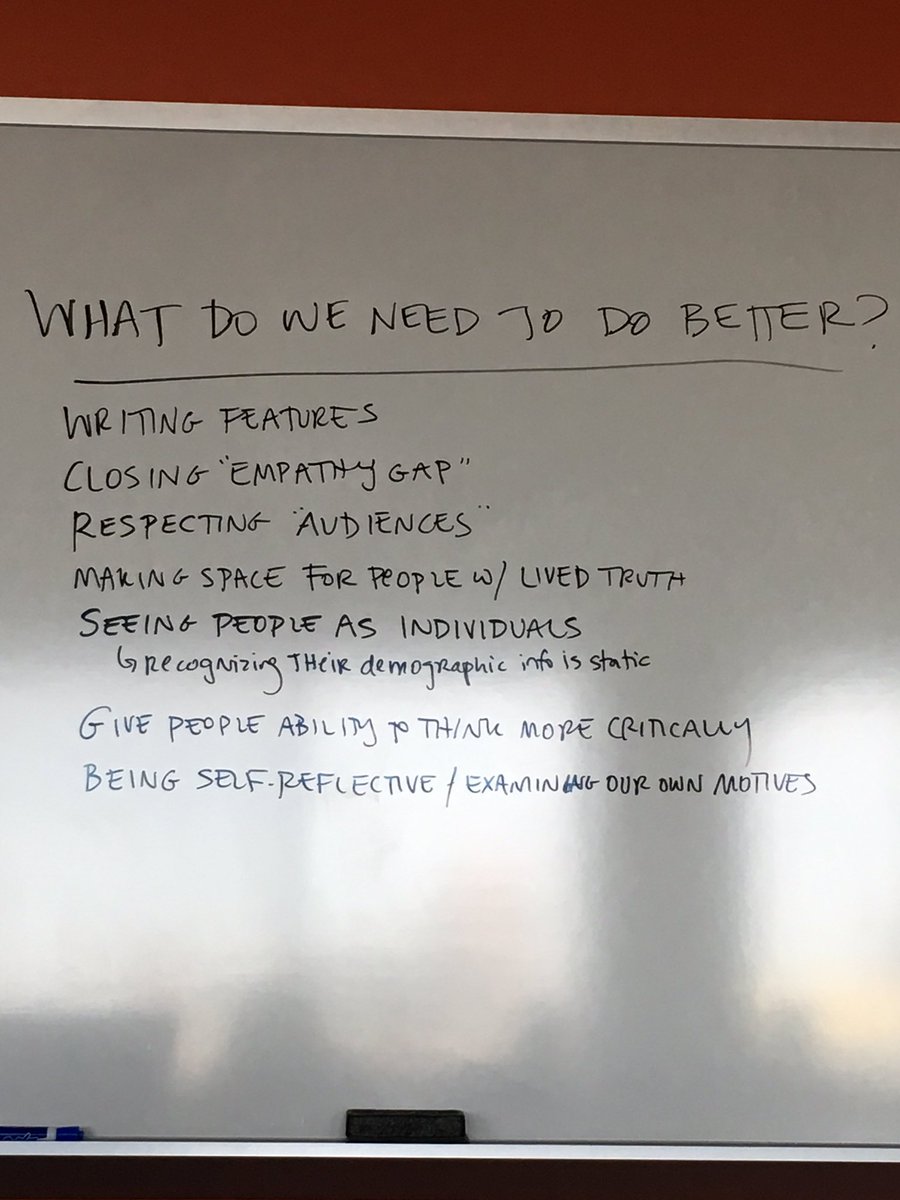 WHAT DO WE NEED TO DO BETTER?
WRITING FEATURES
CLOSING "EMPATHY GAP"
RESPECTING "AUDIENCES"
MAKING SPACE FOR PEOPLE W/ LIVED TRUTH
SEEING PEOPLE AS INDIVIDUALS
↳ RecogNizing THeiR demographic info is static
GIVE PEOPLE ABILITY TO THINK MORE CRITICALLY
BEING SELF-REFLECTIVE / EXAMINING OUR OWN MOTIVES